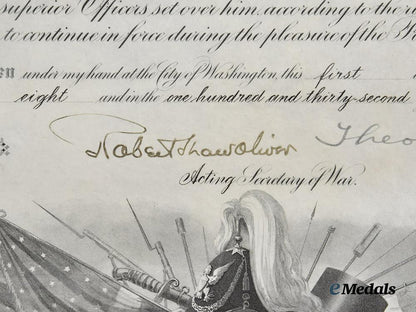 superior Officers set over him, according to the
to continue in force during the pleasure of the
under my hand at the City of Washington, this first
eight and in the one hundred and thirty-second
Robert Shaw Oliver Theo
Acting Secretary of War.
eMedals